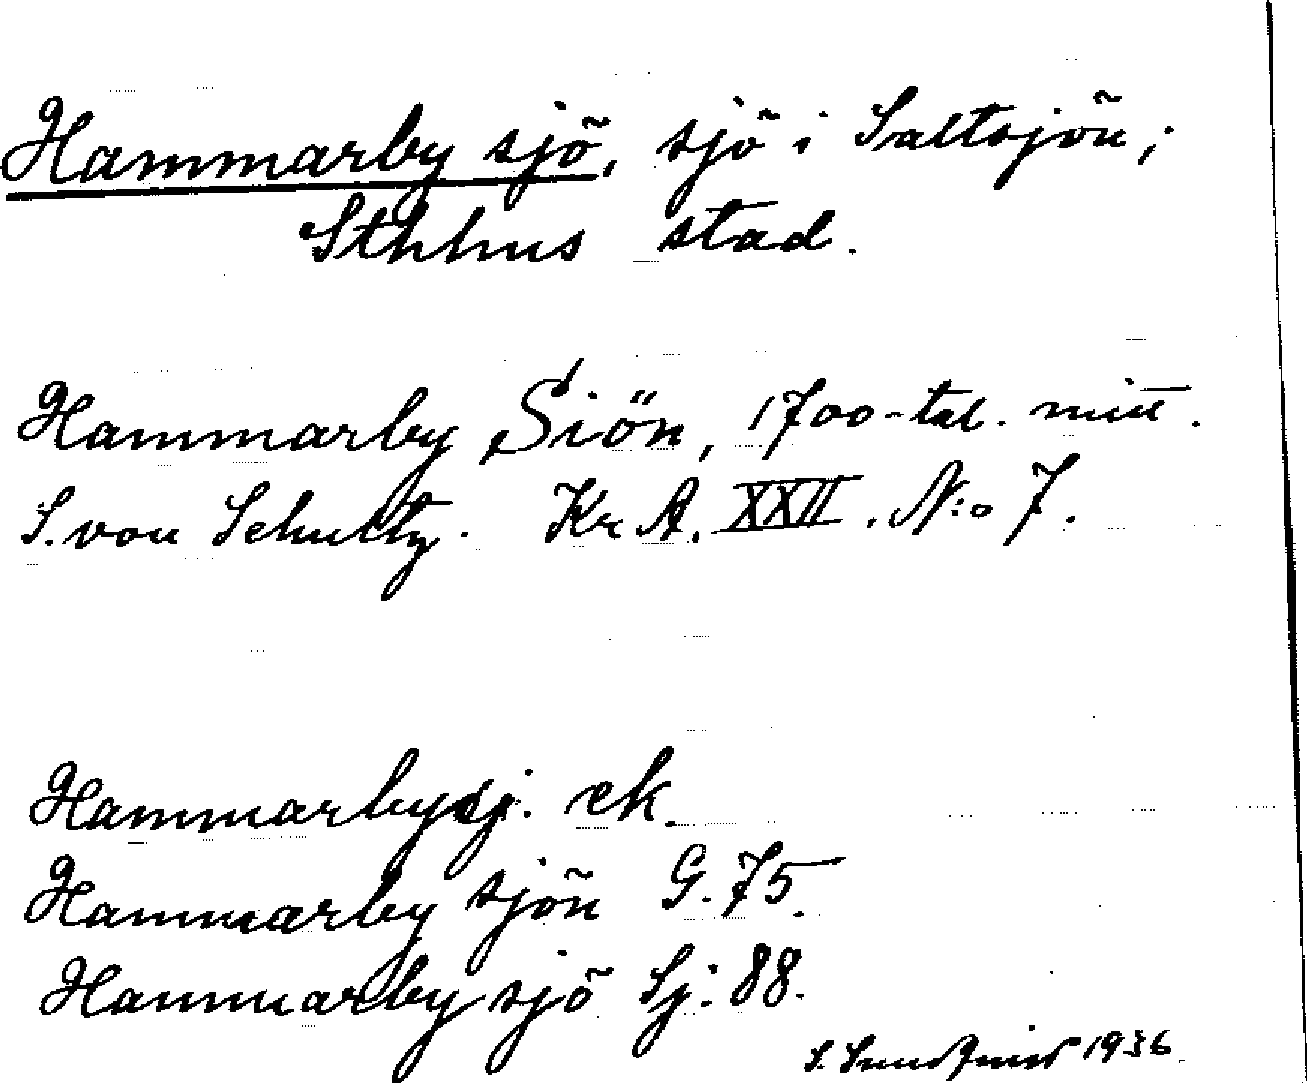 Hammarby sjö, sjö i Saltsjön;
Sthlms stad.
Hammarby Siön, 1700-tal. mitt.
S. von Schultz. Kr A. XXII. N:o 7.
Hammarbysj. ek.
Hammarby sjön G. 75.
Hammarby sjö Sj: 88.
S. Sundquist 1936